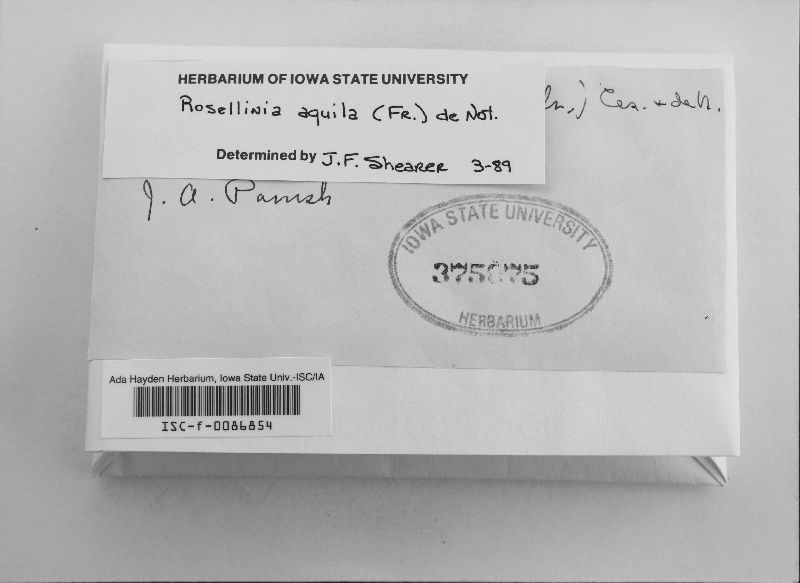 HERBARIUM OF IOWA STATE UNIVERSITY
Rosellinia aquila (Fr.) de Not.
Determined by J.F. Shearer 3-89
) Ces. + deN.
J. A. Parrish
IOWA STATE UNIVERSITY
HERBARIUM
Ada Hayden Herbarium, Iowa State Univ.-ISC/IA
ISC-f-0086854